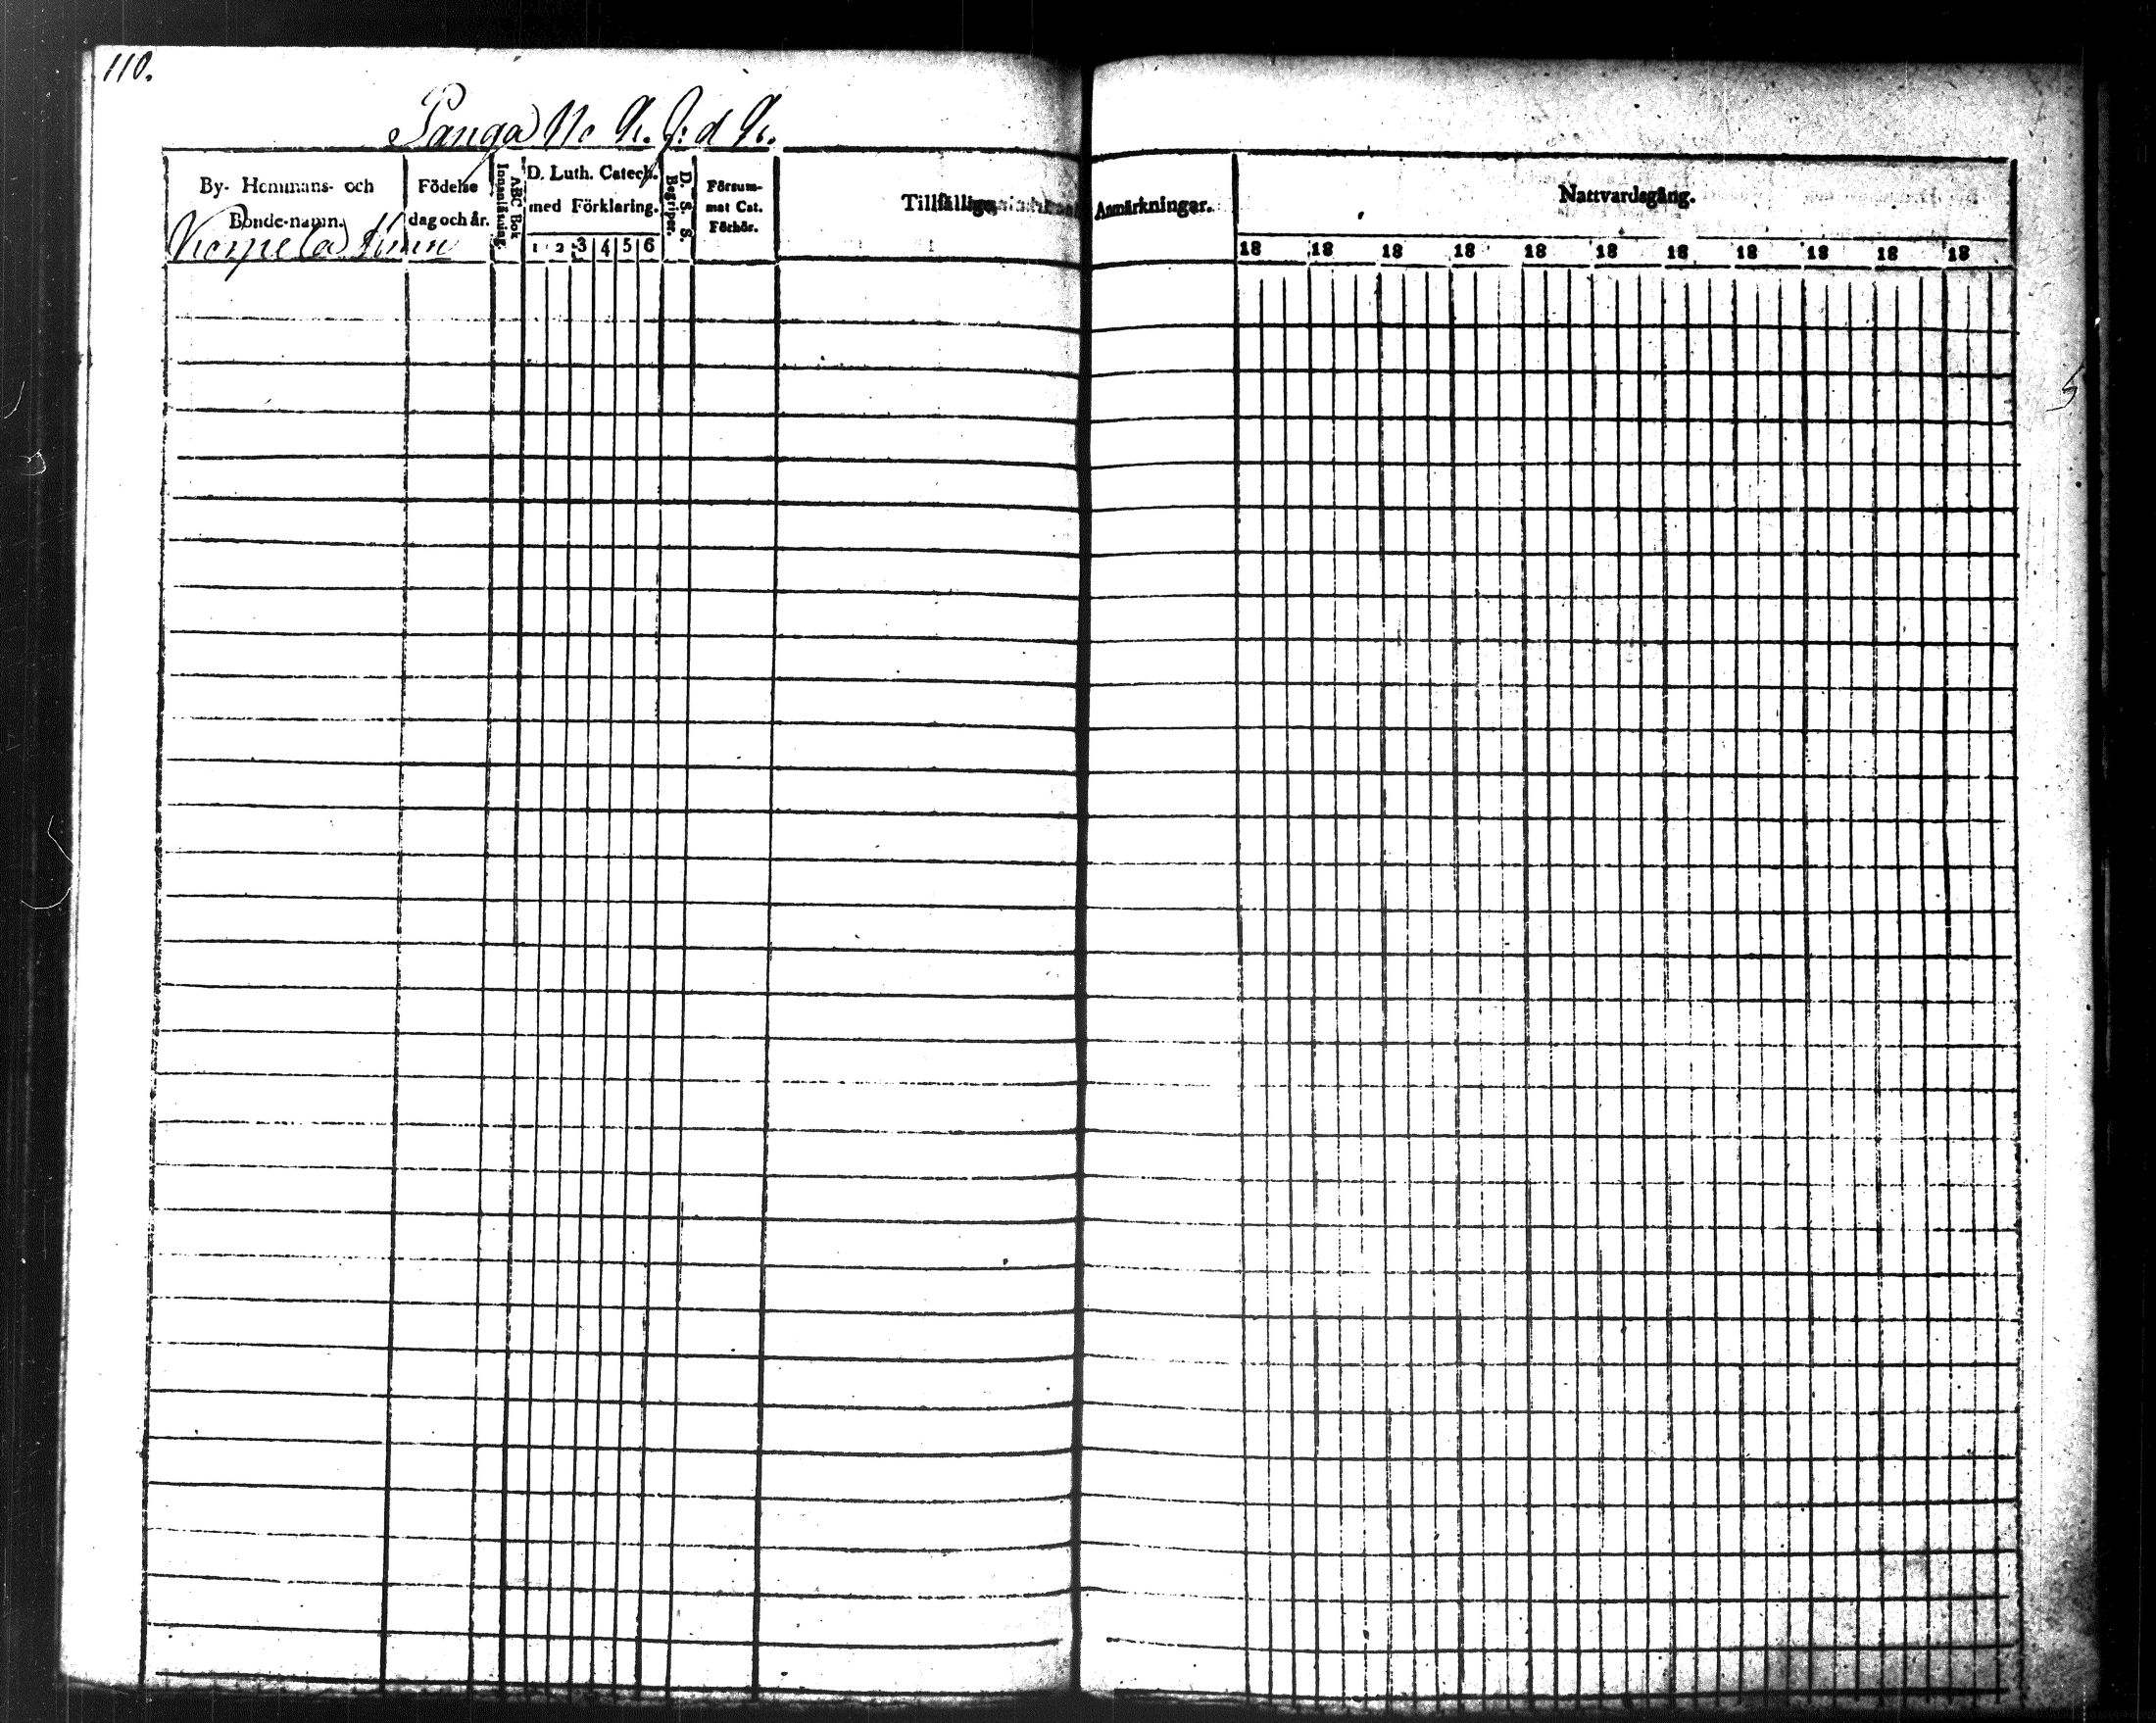 110.
Panga No 9.
By- Hemmans- och Bonde-namn.
Födelse dag och år.
Innanläsning.
ABC Bok
D. Luth. Catech. med Förklaring.
1 2 3 4 5 6
D. S. S.
Begriper.
Försum-
mat Cat.
Förhör.
Tillfällige
Anmärkningar.
Nattvardsgång.
18 18 18 18 18 18 18 18 18 18 18